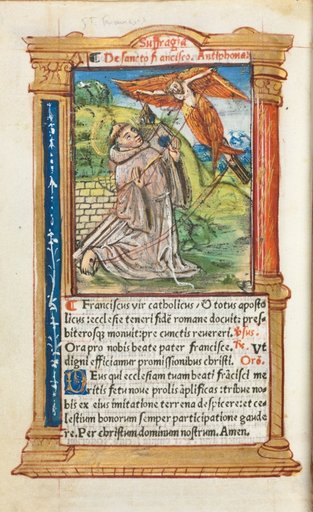 Suffragia
❡ De sancto francisco. Antiphona.
❡ Franciscus vir catholicus / O totus aposto
licus: ecclesie teneri fidē romane docuit: pres⸗
biterosq monuit: pre cunctis reuereri. ℣sus.
Ora pro nobis beate pater francisce. ℟. Vt
digni efficiamur promissionibus christi. Orō.
DEus qui ecclesiam tuam beati frācisci me
ritis fetu noue prolis āplificas: tribue no⸗
bis ex eius imitatione terrena despicere: et ce⸗
lestium bonorum semper participatione gaude
re. Per christum dominum nostrum. Amen.